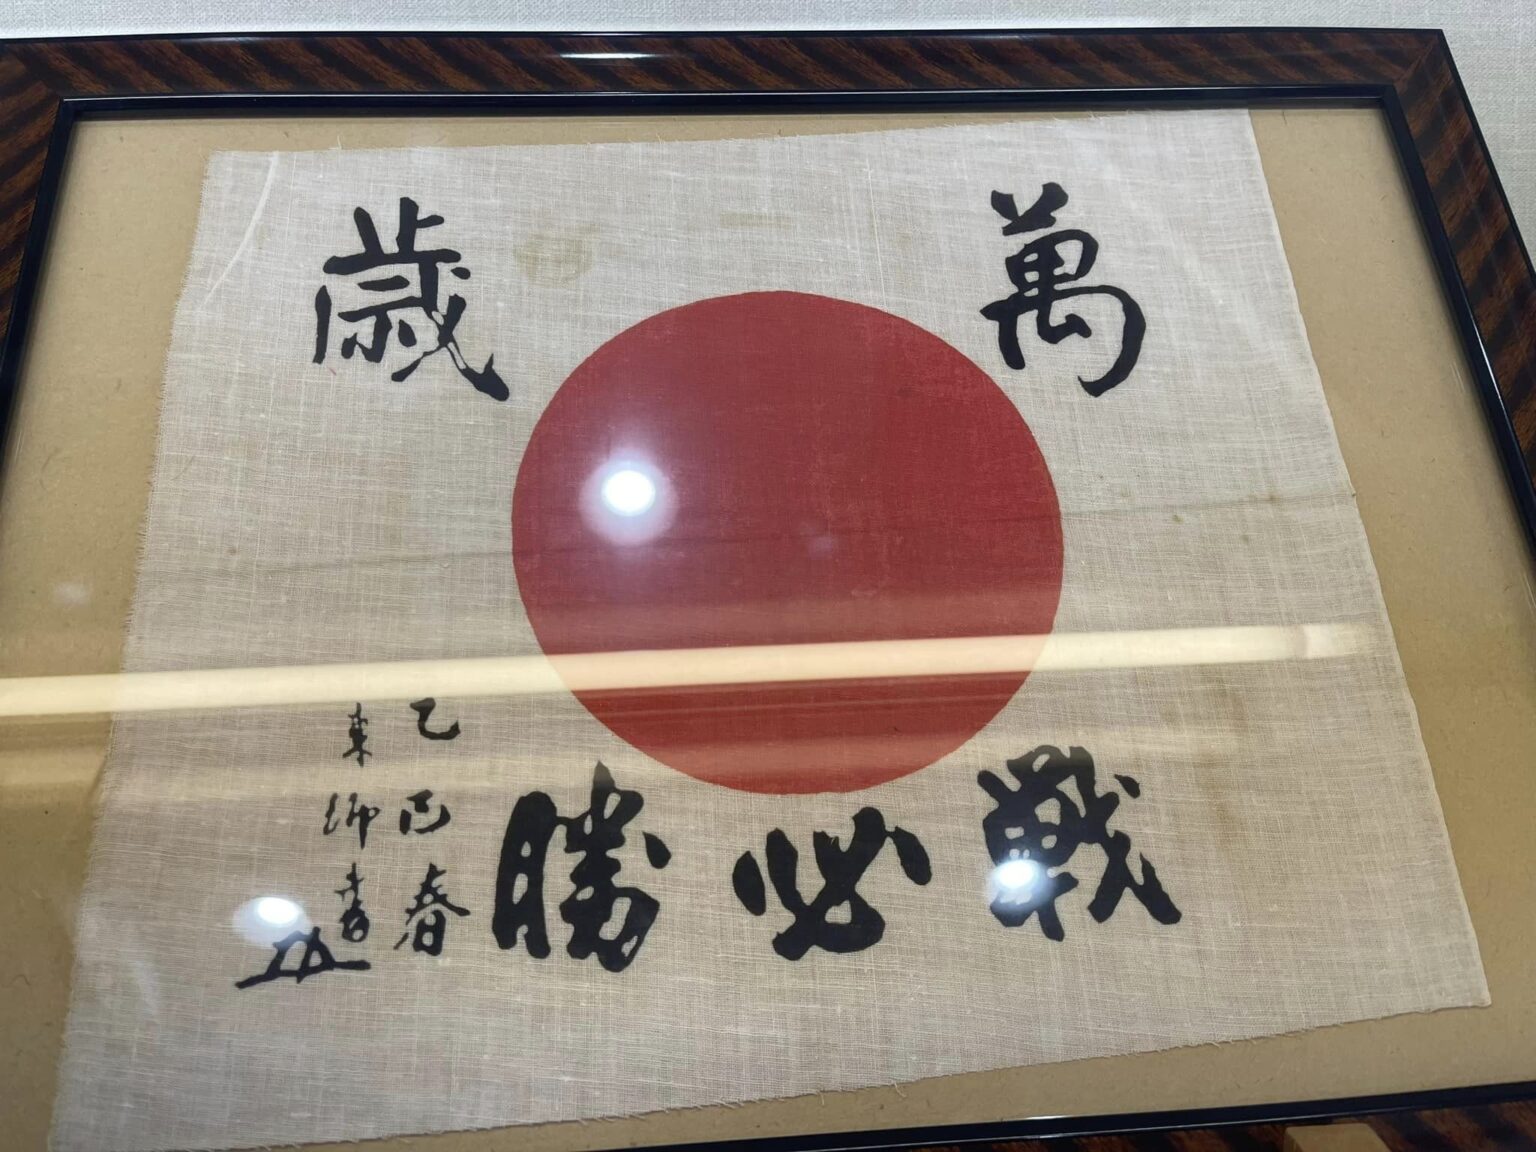 萬歳
戦必勝
乙巳春
東郷書